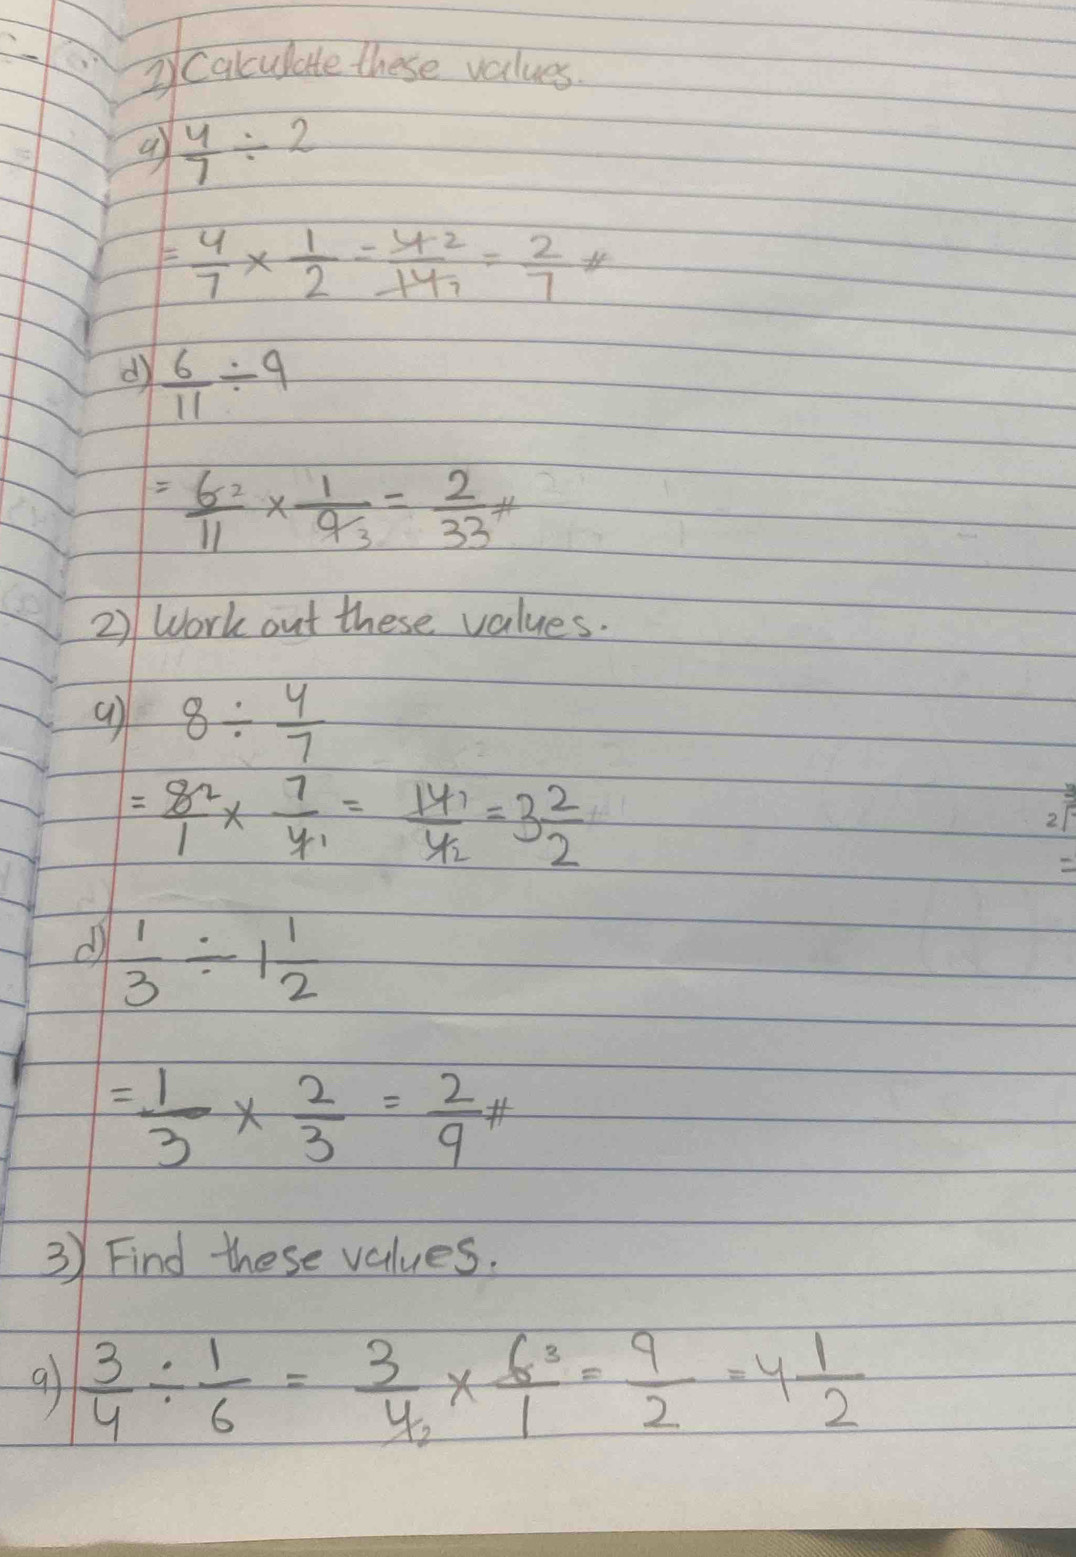 1) Calculate these values.
a) 4/7 ÷ 2
= 4/7 × 1/2 = 4 2/14 7 = 2/7 #
d) 6/11 ÷ 9
= 6 2/11 × 1/9 3 = 2/33 #
2) Work out these values.
a) 8 ÷ 4/7
= 8 2/1 × 7/4 1 = 14 7/4 2 = 3 2/2
d) 1/3 ÷ 1 1/2
= 1/3 × 2/3 = 2/9 #
3) Find these values.
a) 3/4 ÷ 1/6 = 3/4 2 × 6 3/1 = 9/2 = 4 1/2